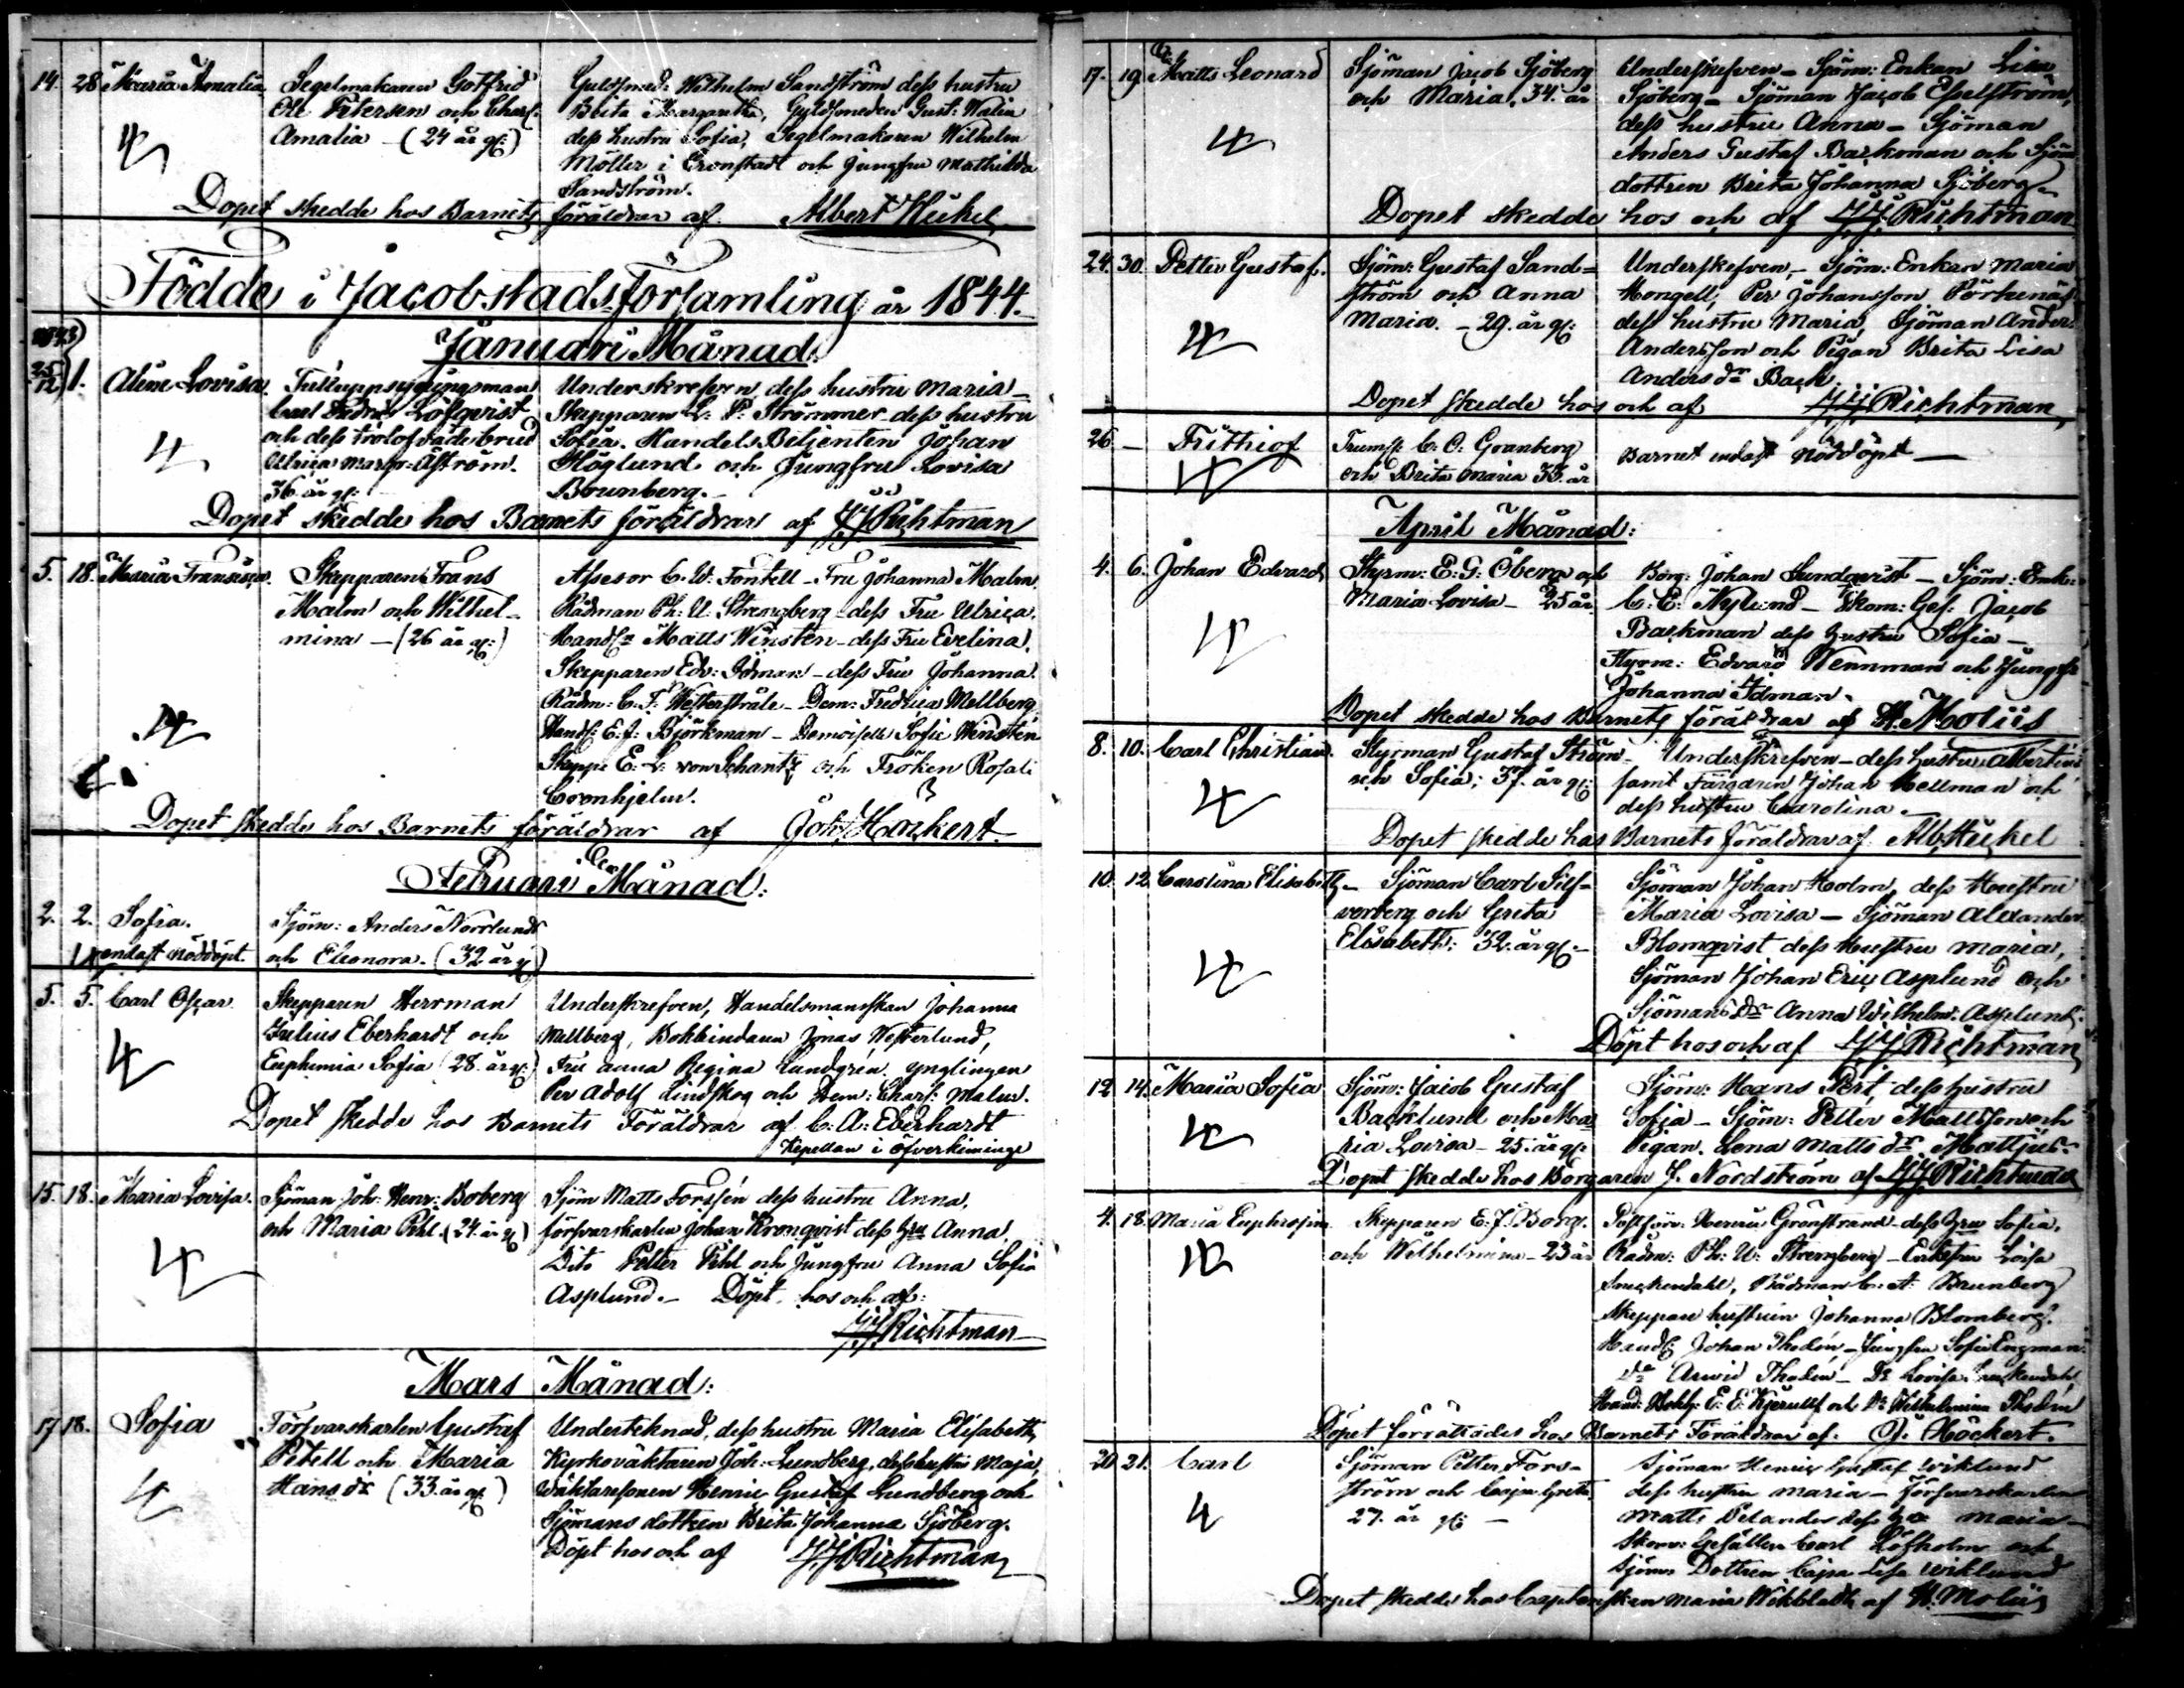 14. 28 Maria Amalia. Segelmakaren Gotfrid Guldsmed: Wilhelm Sandström dess hustru
Ole Petersen och Charl: Brita Margaretha, Guldsmeden Gust: Walin
Amalia – (24 år gl:) dess hustru Sofia, Segelmakaren Wilhelm
Möller i Cronstadt och jungfru Mathilda
Sandström.
Dopet skedde hos Barnets föräldrar af Albert Heikel
Födde i Jacobstads Församling år 1844.
1843
Januari Månad:
25/12 1. Aline Lovisa. Tulluppsyningsman Underskrefven dess hustru Maria –
Carl Fredric Löfqvist Skepparen L: P: Strömmer dess hustru
och dess trolofvade brud Sofia. Handels Betjenten Johan
Ulrica Margr: Åström. Höglund och Jungfru Lovisa
36 år gl: Brunberg. –
Dopet skedde hos Barnets föräldrar af J J Richtman
5. 18. Maria Fransisca. Skepparen Frans Assesor C. W. Fontell – Fru Johanna Malm
Malm och Wilhel- Rådman Ph: U. Strengberg – dess Fru Ulrica,
mina – (26 år gl:) Handl: Matts Winsten – dess Fru Evelina,
Skepparen Edv: Idman – dess Fru Johanna
Rådm: C. F. Westerstråle – Dem: Fredrica Mellberg
Handl: E. J. Björkman – Demoiselle Sofie Winsten
Skepp: E. L. von Schantz och Fröken Rosali
Cronhjelm.
Dopet skedde hos Barnets föräldrar af Joh: Höckert.
Februari Månad:
2. 2. Sofia. Sjöm: Anders Norrlund
endast nöddöpt. och Eleonora. (32 år gl)
5. 5. Carl Oscar Skepparen Herrman Underskrefven, Handelsmanskan Johanna
Julius Eberhardt och Mellberg, Bokbindaren Jonas Westerlund,
Euphemia Sofia (28. år gl:) Fru Anna Regina Lundgrén. Ynglingen
Per Adolf Lindskog och Dem: Charl: Malm.
Dopet skedde hos Barnets Föräldrar af C: A: Eberhardt
Kapellan i Öfverkiminge
15. 18. Maria Lovisa. Sjöman Joh: Henr: Boberg Sjöm Matts Forssén dess hustru Anna,
och Maria Pihl. (24 år gl) försvarskarlen Johan Kronqvist dess Hru Anna,
Dito Petter Pihl och Jungfru Anna Sofia
Asplund. – Döpt hos och af:
J J Richtman
Mars Månad:
17 18. Sofia Försvarskarlen Gustaf Underteknad, dess hustru Maria Elisabeth,
Petell och Maria Kyrkoväktaren Joh: Lundberg, dess hustru Maja,
Hans dr (33 år gl) Wäktaresonen Henric Gustaf Lundberg och
Sjömans dottren Brita Johanna Sjöberg.
Döpt hos och af J J Richtman
17. 19 Matts Leonard Sjöman Jacob Sjöberg Underskrefven – Sjöm: Enkan Lisa
och Maria, 34. år Sjöberg – Sjöman Jacob Esselström,
dess hustru Anna – Sjöman
Anders Gustaf Backman och Sjöm
dottren Brita Johanna Sjöberg –
Dopet skedde hos och af J J Richtman
24. 30. Petter Gustaf. Sjöm: Gustaf Sand= Underskrefven, – Sjöm: Enkan Maria
ström och Anna Mongell, Per Johansson Pörkenäs
Maria. – 29. år gl: dess hustru Maria, Sjöman Ander:
Andersson och Pigan Brita Lisa
Anders dr Back.
Dopet skedde hos och af J J Richtman
26 – Frithiof Trumsl: C. O. Granberg Barnet endast nöddöpt –
och Brita Maria 33. år
April Månad:
4. 6. Johan Edvard Styrm: E: G: Öberg och Borg: Johan Sundqvist – Sjöm: Enk:
Maria Lovisa – 25 år C: E: Nylund – Skom: Ges: Jacob
Backman dess hustru Sofia –
Styrm: Edvard Wennman och Jungfr
Johanna Idman.
Dopet skedde hos Barnets föräldrar af H. Molliis
8. 10. Carl Christian. Styrman Gustaf Ström Underskrefven – dess hustru Albertina
och Sofia; 37. år gl: samt Färgaren Johan Hellman och
dess hustru Carolina.
Dopet skedde hos Barnets föräldrar af Alb Heikel
10. 12 Carolina Elisabeth – Sjöman Carl Silf- Sjöman Johan Holm, dess Hustru
verberg och Greta Maria Lovisa – Sjöman Alexander
Elisabeth: 32. år gl. – Blomqvist dess hustru Maria,
Sjöman Johan Eric Asplund och
Sjömans Dr Anna Wilhelm: Asplund.
Döpt hos och af J J Richtman
12 14. Maria Sofia Sjöm: Jacob Gustaf Sjöm: Hans Pert, dess hustru
Backlund och Ma Sofia – Sjöm: Petter Mattsson och
ria Lovisa – 25. år gl: Pigan. Lena Matts dr Mattjus. –
Dopet skedde hos Borgaren J. Nordström af J J Richtman
4. 18. Maria Euphrosine Skepparen E. J. Borg. Postförv: Henric Grönstrand – dess Hru Sofia,
och Wilhelmina – 23 år Rådm: Ph: U: Strengberg – Enkefru Lovisa
Rådman C: A: Brunberg
Skeppare hustrun Johanna Blomberg.
Handl: Johan Thodén – Jungfru Sofia Engman.
Do Arvid Thodén – Do Lovisa
Hand: Bokh: E. E. Kjerulff och Do Wilhelmina Thodén
Dopet förrättades hos Barnets Föräldrar af. J. Höckert.
20 21. Carl Sjöman Petter Fors- Sjöman Henric Gustaf Wiklund
ström och Cajsa Greta dess hustru Maria – Försvarskarlen
27. år gl: – Matts Delander dess Hru Maria –
Skom: Gesällen Carl Löfholm och
Sjöms Dottren Cajsa Lisa Wiklund
Dopet skedde hos Captenskan Maria Wikblad af H. Moliis